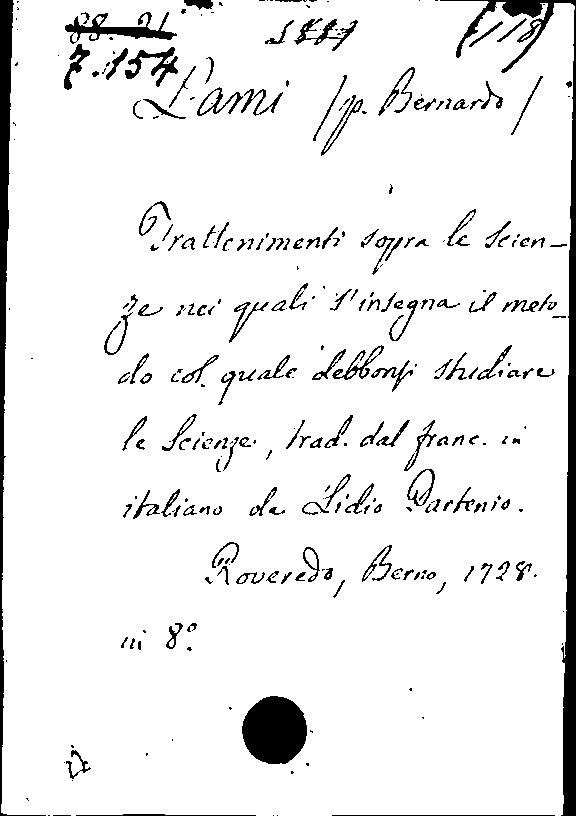 88. 21 1887 (118)
7.154
Lami /p. Bernardo/
Trattenimenti sopra le scien-
ze nei quali s'insegna il meto-
do col quale debbonsi studiare
le Scienze, trad. dal franc. in
italiano da Lidio Partenio.
Roveredo, Berno, 1728.
in 8º.